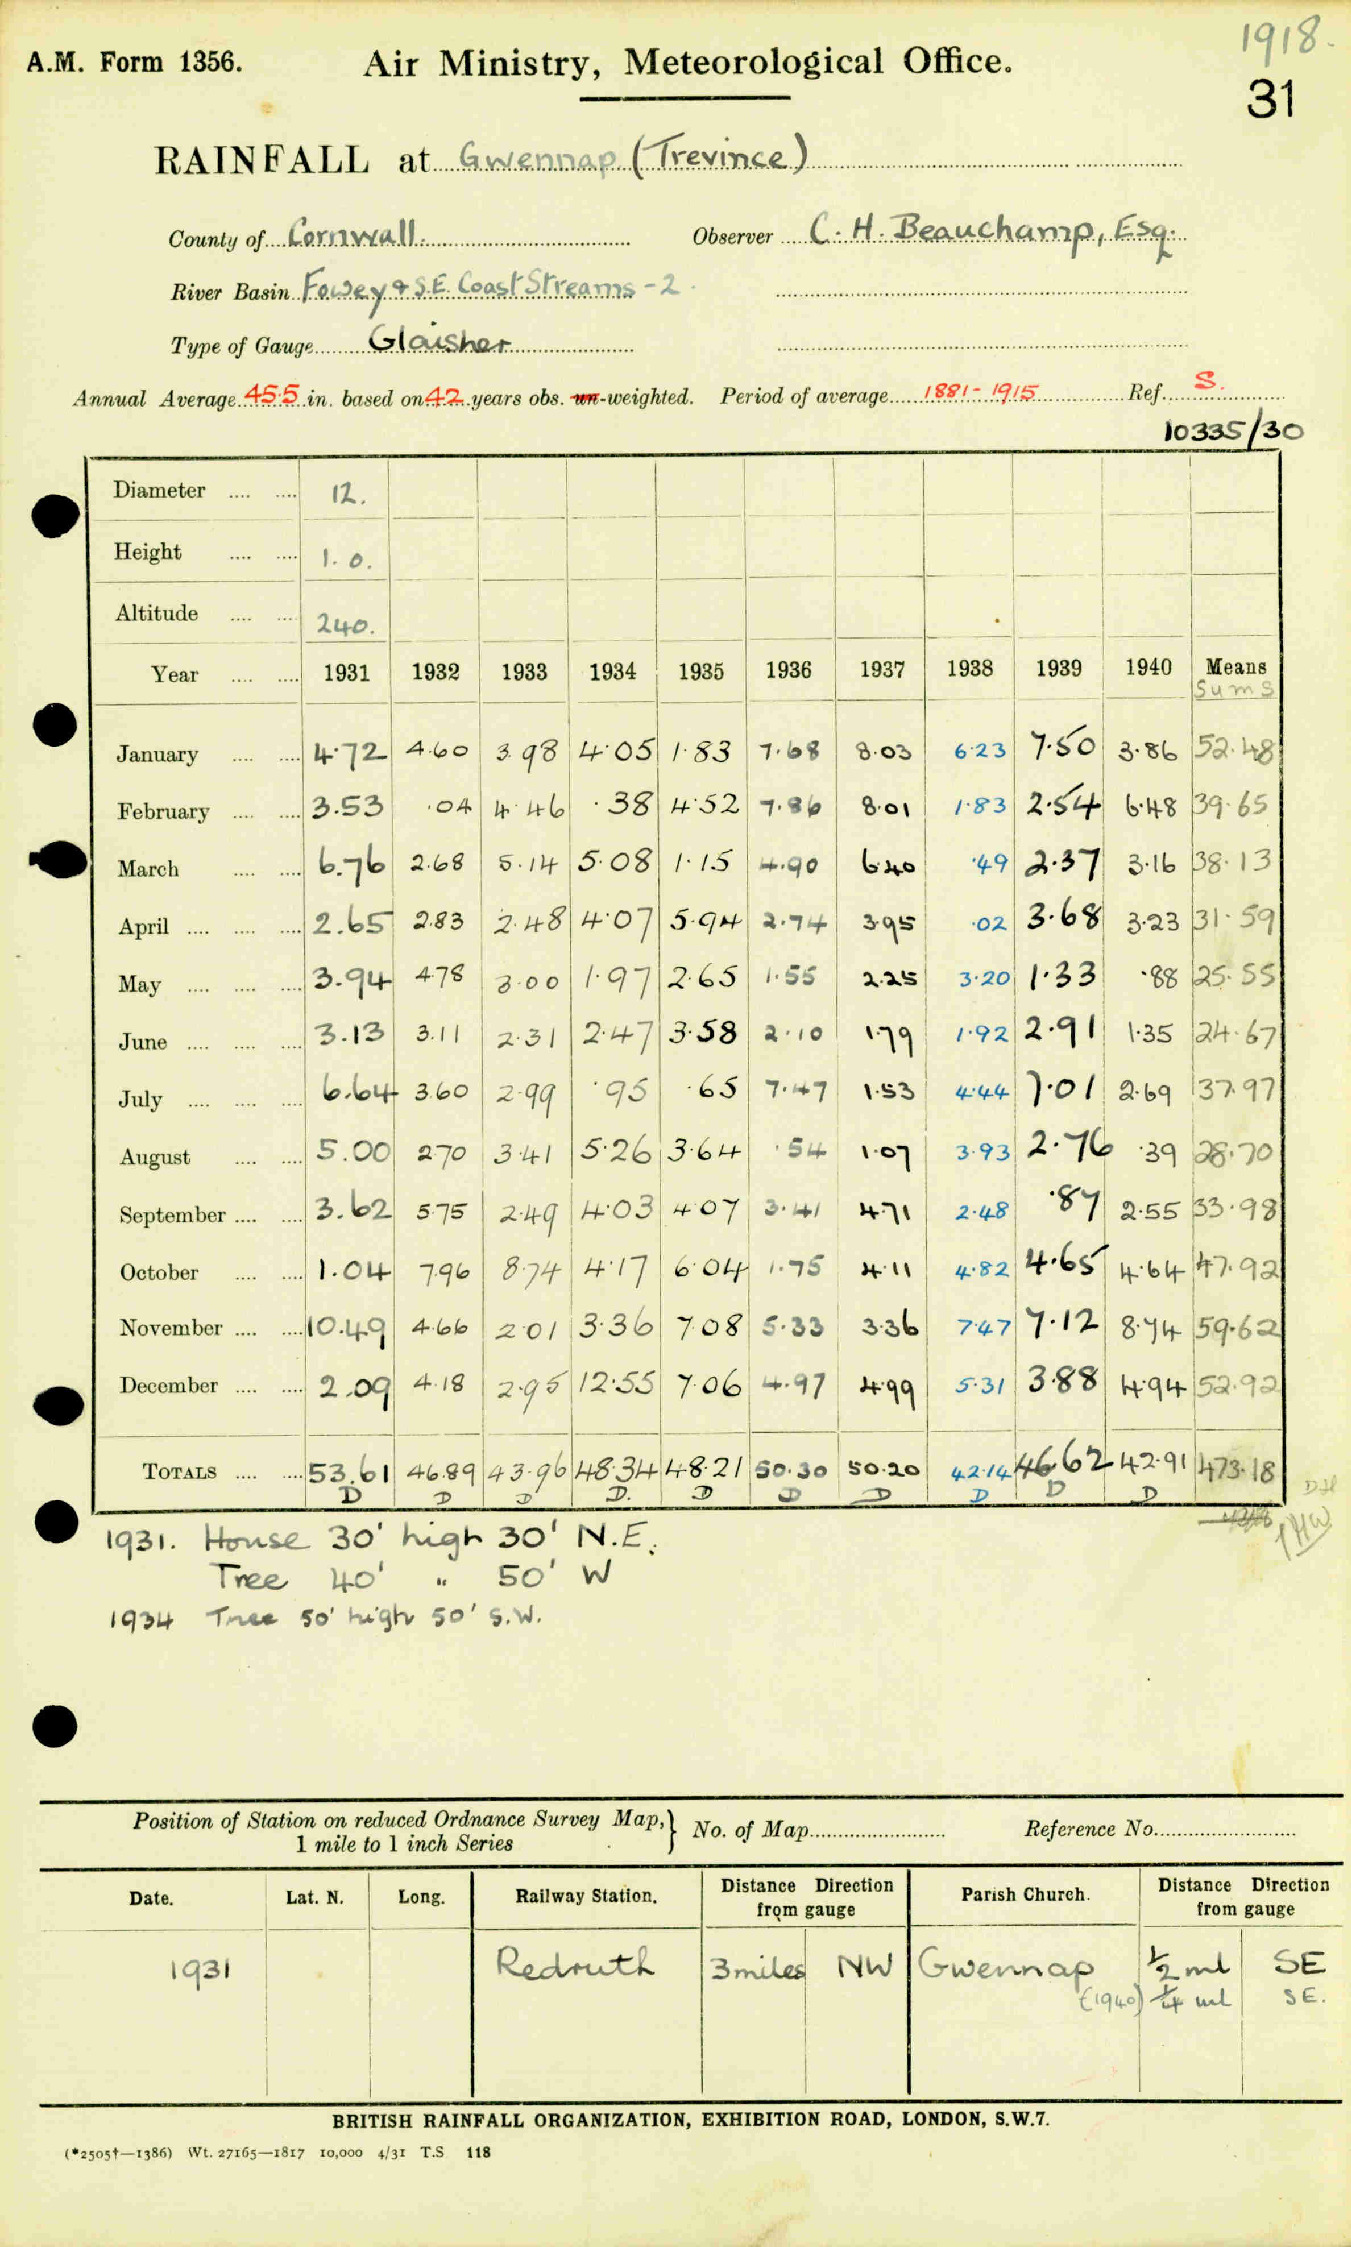 1918.
A.M. Form 1356. Air Ministry, Meteorological Office.
31
RAINFALL at Gwennap (Trevince)
County of Cornwall. Observer C. H. Beauchamp, Esq.
River Basin Fowey & S.E. Coast Streams - 2.
Type of Gauge Glaisher
Annual Average 45.5 in. based on 42 years obs. un-weighted. Period of average 1881 - 1915 Ref. S.
10335/30
Diameter 12.
Height 1. 0.
Altitude 240.
Year 1931 1932 1933 1934 1935 1936 1937 1938 1939 1940 Means
Sums
January 4.72 4.60 3.98 4.05 1.83 7.68 8.03 6.23 7.50 3.86 52.48
February 3.53 .04 4.46 .38 4.52 7.86 8.01 1.83 2.54 6.48 39.65
March 6.76 2.68 5.14 5.08 1.15 4.90 6.40 .49 2.37 3.16 38.13
April 2.65 2.83 2.48 4.07 5.94 2.74 3.95 .02 3.68 3.23 31.59
May 3.94 4.78 3.00 1.97 2.65 1.55 2.25 3.20 1.33 .88 25.55
June 3.13 3.11 2.31 2.47 3.58 2.10 1.79 1.92 2.91 1.35 24.67
July 6.64 3.60 2.99 .95 .65 7.47 1.53 4.44 7.01 2.69 37.97
August 5.00 2.70 3.41 5.26 3.64 .54 1.07 3.93 2.76 .39 28.70
September 3.62 5.75 2.49 4.03 4.07 3.41 4.71 2.48 .87 2.55 33.98
October 1.04 7.96 8.74 4.17 6.04 1.75 4.11 4.82 4.65 4.64 47.92
November 10.49 4.66 2.01 3.36 7.08 5.33 3.36 7.47 7.12 8.74 59.62
December 2.09 4.18 2.95 12.55 7.06 4.97 4.99 5.31 3.88 4.94 52.92
TOTALS 53.61 46.89 43.96 48.34 48.21 50.30 50.20 42.14 46.62 42.91 473.18
D D D D. D D D D D D
1931. House 30' high 30' N.E.
Tree 40' " 50' W
1934 Tree 50' high 50' S.W.
Position of Station on reduced Ordnance Survey Map, 1 mile to 1 inch Series } No. of Map Reference No.
Date. Lat. N. Long. Railway Station. Distance Direction from gauge Parish Church. Distance Direction from gauge
1931 Redruth 3 miles NW Gwennap ½ ml SE
(1940) ¼ ml SE.
BRITISH RAINFALL ORGANIZATION, EXHIBITION ROAD, LONDON, S.W.7.
(*2505†—1386) Wt. 27165—1817 10,000 4/31 T.S 118